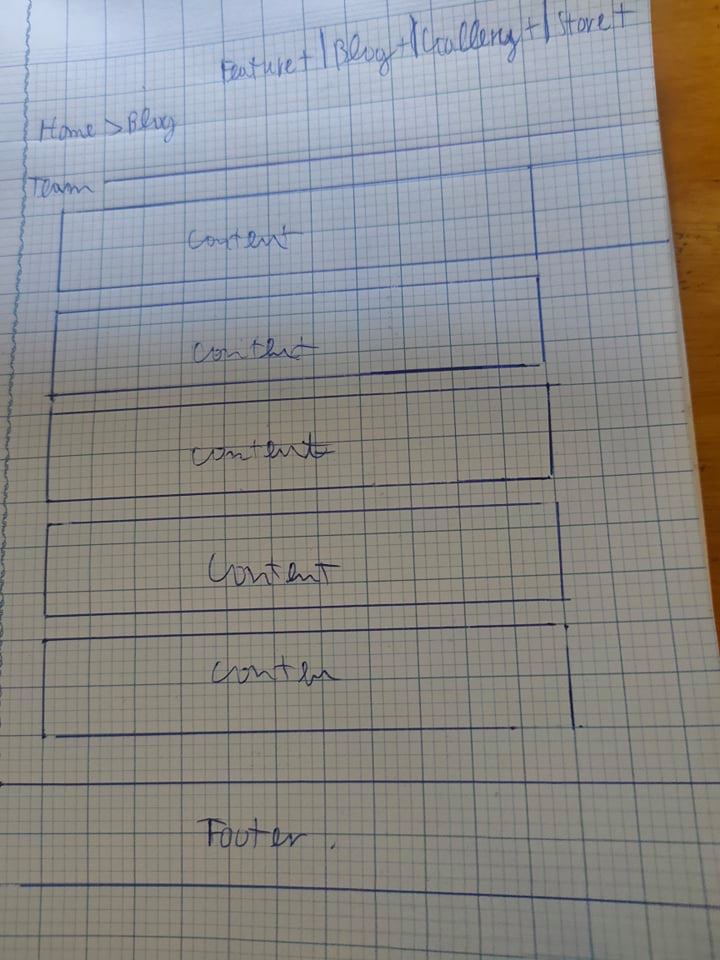 Feature+ | Blog+ | Challeng+ | Store+
Home > Blog
Team
Content
Content
Content
Content
Conten
Footer.